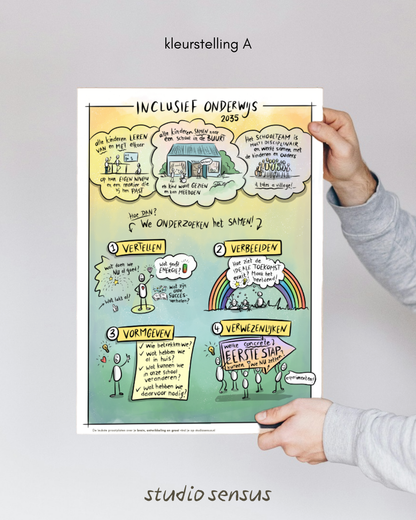 kleurstelling A
INCLUSIEF ONDERWIJS
2035
alle kinderen LEREN
VAN en MET elkaar
op hun EIGEN NIVEAU
en een manier die
bij hen PAST
alle kinderen SAMEN naar
een school in de BUURT
elk kind wordt GEZIEN
en kan MEEDOEN
Het SCHOOLTEAM is
MULTIDISCIPLINAIR
en werkt samen met
de kinderen en ouders
it takes a village!
HOE DAN?
We ONDERZOEKEN het SAMEN!
1 VERTELLEN
wat doen we
NU al goed?
wat geeft
ENERGIE?
wat lukt al?
wat zijn
onze
SUCCES-
verhalen?
2 VERBEELDEN
Hoe ziet de
IDEALE TOEKOMST
eruit? Maak het
beeldend!
3 VORMGEVEN
Wie betrekken we?
Wat hebben we
al in huis?
Wat kunnen we
in onze school
veranderen?
Wat hebben we
daarvoor nodig?
4 VERWEZENLIJKEN
Welke concrete
EERSTE STAP
kunnen we NU zetten?
studio sensus